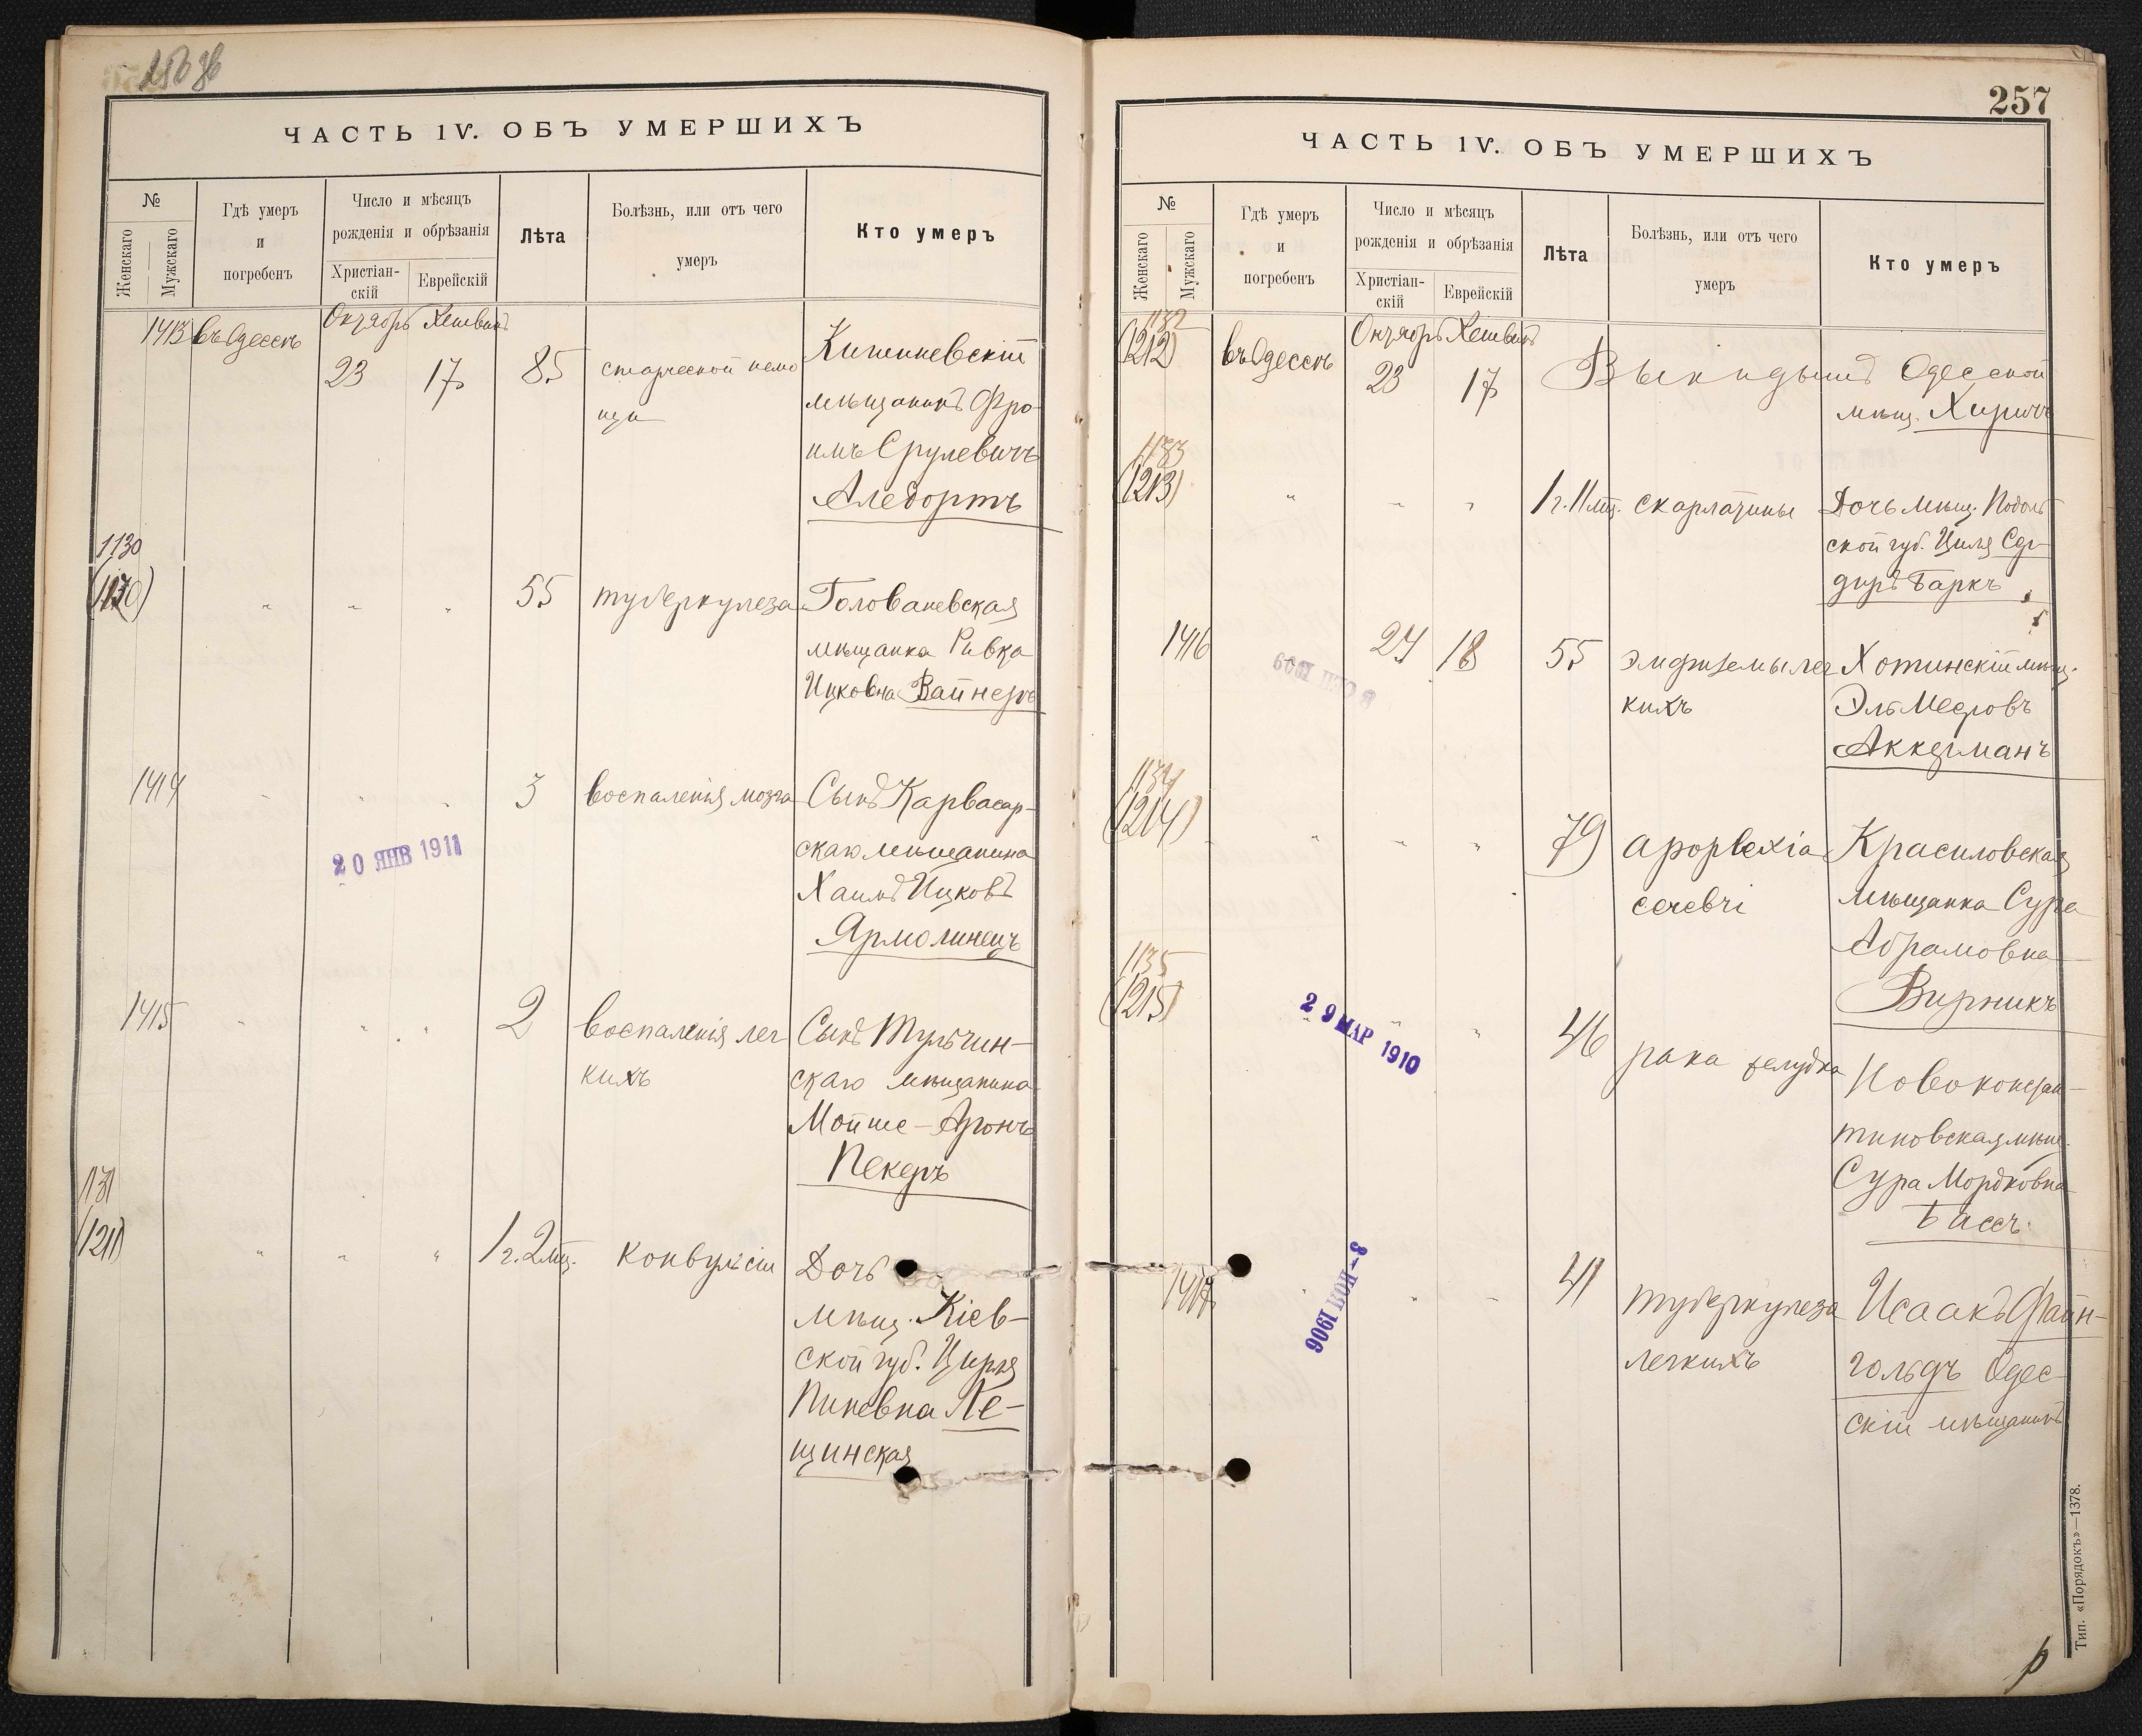 ЧАСТЬ IV. ОБЪ УМЕРШИХЪ
№
Женскаго
Мужскаго
Гдѣ умеръ
и
погребенъ
Число и мѣсяцъ
рожденія и обрѣзанія
Христіан-
скій
Еврейскій
Лѣта
Болѣзнь, или отъ чего
умеръ
Кто умеръ
Октябрь Хешванъ
1413 въ Одессѣ 23 17 85 старческой немо
щи
Кишиневскій
мѣщанинъ Фро
имъ Срулевичъ
Аледортъ
1130
" " " 55 туберкулеза Голованевская
мѣщанка Ривка
Ицковна Вайнеръ
1414 " " " 3 воспаленія мозга Сынъ Карвасар-
скаго мѣщанина
Хаимъ Ицковъ
Ярмолинецъ
20 ЯНВ 1911
1415 " " " 2 воспаленія лег
кихъ
Сынъ Тульчин-
скаго мѣщанина
Мойше-Аронъ
Пекеръ
1131
(1211) " " " 1 г. 2 мц. конвульсіи Дочь
мѣщ. Кіев-
ской губ. Цирля
Пиневна Ле-
щинская
257
ЧАСТЬ IV. ОБЪ УМЕРШИХЪ
№
Женскаго
Мужскаго
Гдѣ умеръ
и
погребенъ
Число и мѣсяцъ
рожденія и обрѣзанія
Христіан-
скій
Еврейскій
Лѣта
Болѣзнь, или отъ чего
умеръ
Кто умеръ
1132 Октябрь Хешванъ
(1212) въ Одессѣ 23 17 Выкидышъ Одесской
мѣщ.
1133
(1213) " " " 1 г. 11 мц. скарлатины Дочь мѣщ. Подоль
ской губ. Циля
Баркъ
1416 24 18 55 эмфиземы лег
кихъ
Хотинскій мѣщ.
Эль Мееровъ
Аккерманъ
1134
(1214) " " " 79 apoplexia
cerebri
Красиловская
мѣщанка Сура
Абрамовна
Вирникъ
1135
(1215) " " 46 рака желудка Новоконстан-
тиновская мѣщ.
Сура Мордковна
Бассъ
29 МАР 1910
1417 " " " 41 туберкулеза
легкихъ
Исаакъ Файн-
гольдъ Одес-
скій мѣщанинъ
8- НОЯ 1906
Тип. «Порядокъ»—1378.